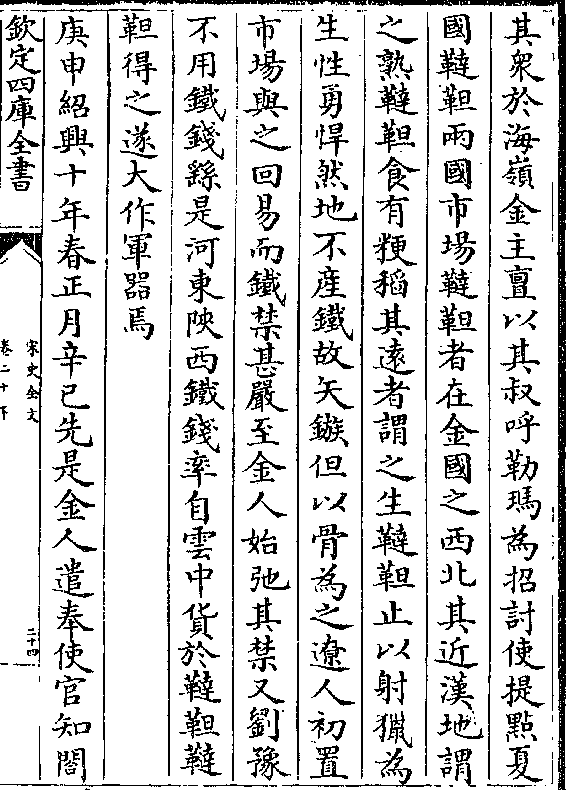 其衆於海嶺金主亶以其叔呼勒瑪為招討使提㸃夏
國韃靼兩國市場韃靼者在金國之西北其近漢地謂
之熟韃靼食有粳稻其遠者謂之生韃靼止以射獵為
生性勇悍然地不産鐵故矢鏃但以骨為之遼人初置
市場與之回易而鐵禁甚嚴至金人始弛其禁又劉豫
不用鐵錢繇是河東陜西鐵錢率自雲中貨於韃靼韃
靼得之遂大作軍器焉
庚申紹興十年春正月辛巳先是金人遣奉使官知閤
欽定四庫全書
宋史全文
卷二十下
二十四